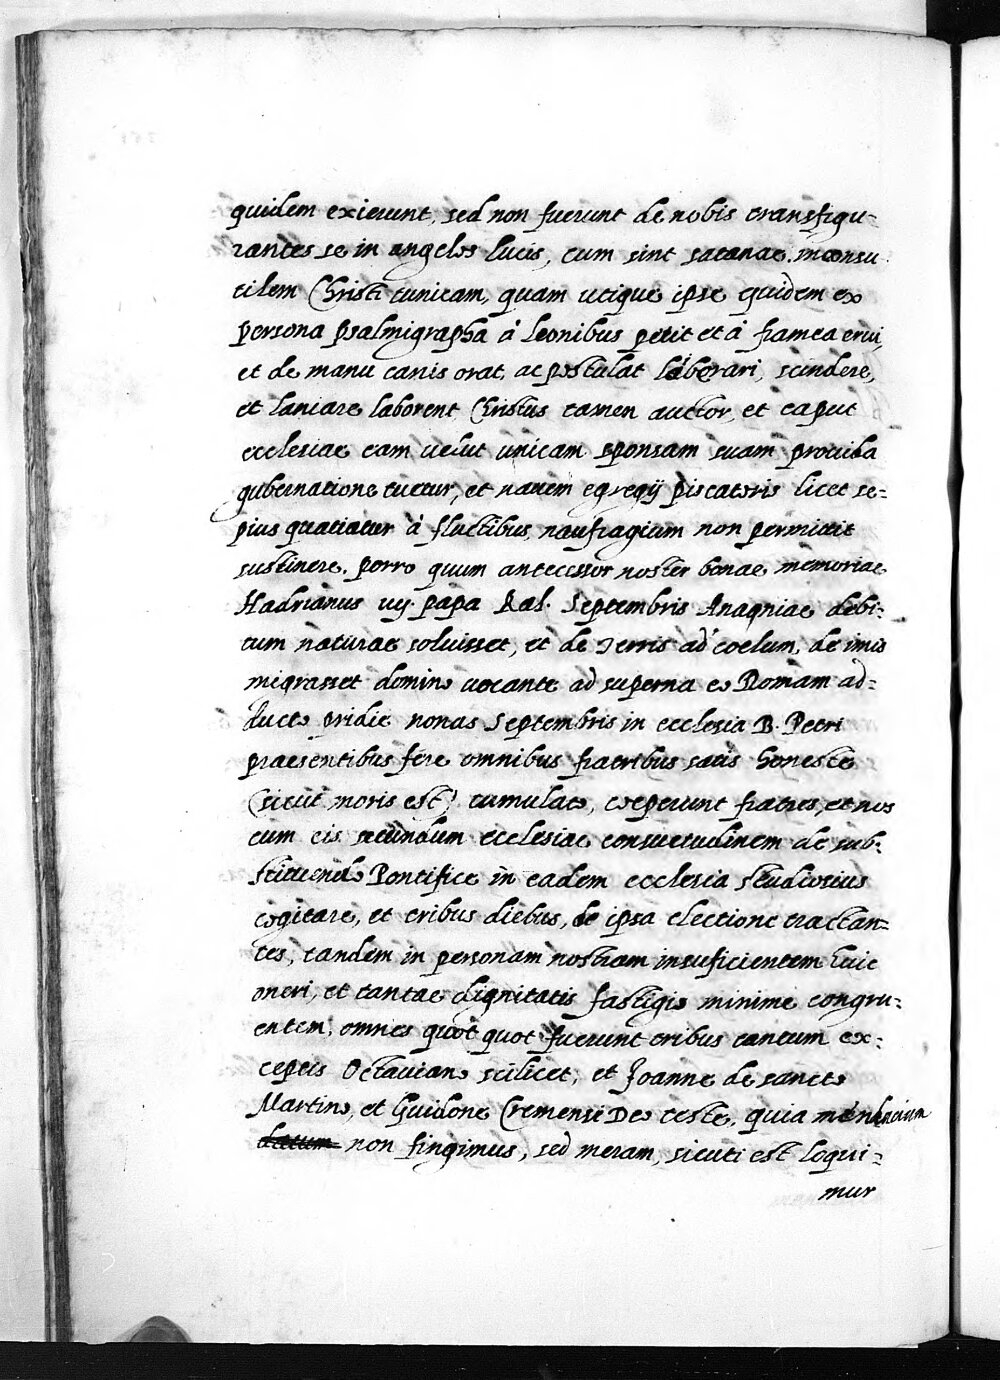 quidem exierunt, sed non fuerunt de nobis transfigu-
rantes se in angelos lucis, cum sint satanae. inconsu
tilem Christi tunicam, quam utique ipse quidem ex
persona psalmigrapha à leonibus petit et à framea erui,
et de manu canis orat, ac postulat liberari, scindere,
et laniare laborent Christus tamen auctor, et caput
ecclesiae eam uelut unicam sponsam suam prouida
gubernatione tuetur, et nauem egregij piscatoris licet se-
pius quatiatur à fluctibus, naufragium non permittit
sustinere. porro quum antecessor noster bonae memoriae
Hadrianus iiij. papa Kal. Septembris Anagniae debi-
tum naturae soluisset, et de terris ad coelum, de imis
migrasset domino uocante ad superna eo Romam ad-
ducto pridie nonas Septembris in ecclesia B. Petri
praesentibus fere omnibus fratribus satis honeste
(sicut moris est) tumulato, coeperunt fratres, et nos
cum eis secundum ecclesiae consuetudinem de sub-
stituendo Pontifice in eadem ecclesia studiosius
cogitare, et tribus diebus, de ipsa electione tractan-
tes, tandem in personam nostram insuficientem huic
oneri, et tantae dignitatis fastigio minime congru-
entem, omnes quot quot fuerunt tribus tantum ex-
ceptis Octauiano scilicet, et Joanne de sancto
Martino, et Guidone Cremense Deo teste, quia mendacium
datum non fingimus, sed meram, sicuti est loqui-
mur